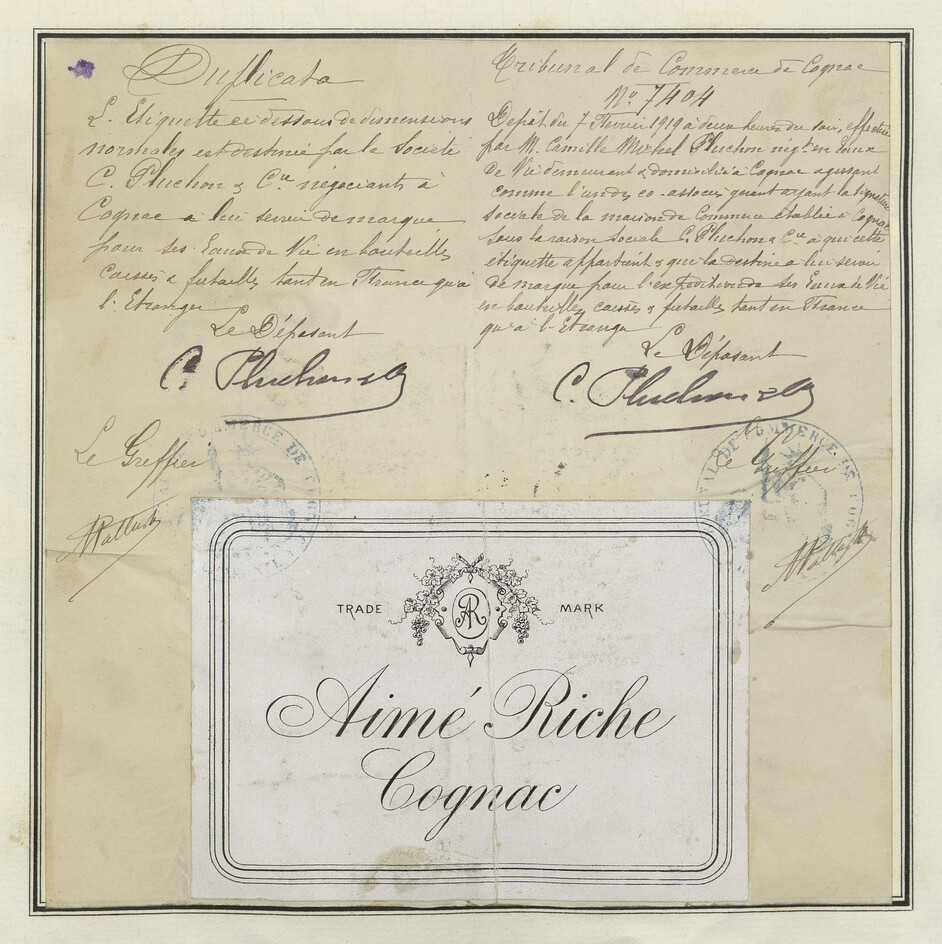 Duplicata
L'Etiquette ci dessous de dimensions
normales est destinée par la Société
C. Pluchon & Cie négociants à
Cognac à lui servir de marque
pour ses Eaux de Vie en bouteilles
caisses & futailles tant en France qu'à
l'Etranger
Le Déposant
C. Pluchon & Co
Le Greffier
Tribunal de Commerce de Cognac
No 7404
Dépôt du 7 Février 1919 à deux heures du soir, effectué
par M. Camille Michel Pluchon négt en Eaux
de Vie demeurant & domicilié à Cognac agissant
comme l'un des co-associés gérant ayant la signature
sociale de la maison de Commerce établie à Cognac
sous la raison sociale C. Pluchon & Cie à qui cette
étiquette appartient & qui la destine à lui servir
de marque pour l'expédition de ses Eaux de Vie
en bouteilles, caisses & futailles tant en France
qu'à l'Etranger
Le Déposant
C. Pluchon & Co
Le Greffier
COMMERCE DE
DE COMMERCE DE COG
TRADE AR MARK
Aimé Riche
Cognac